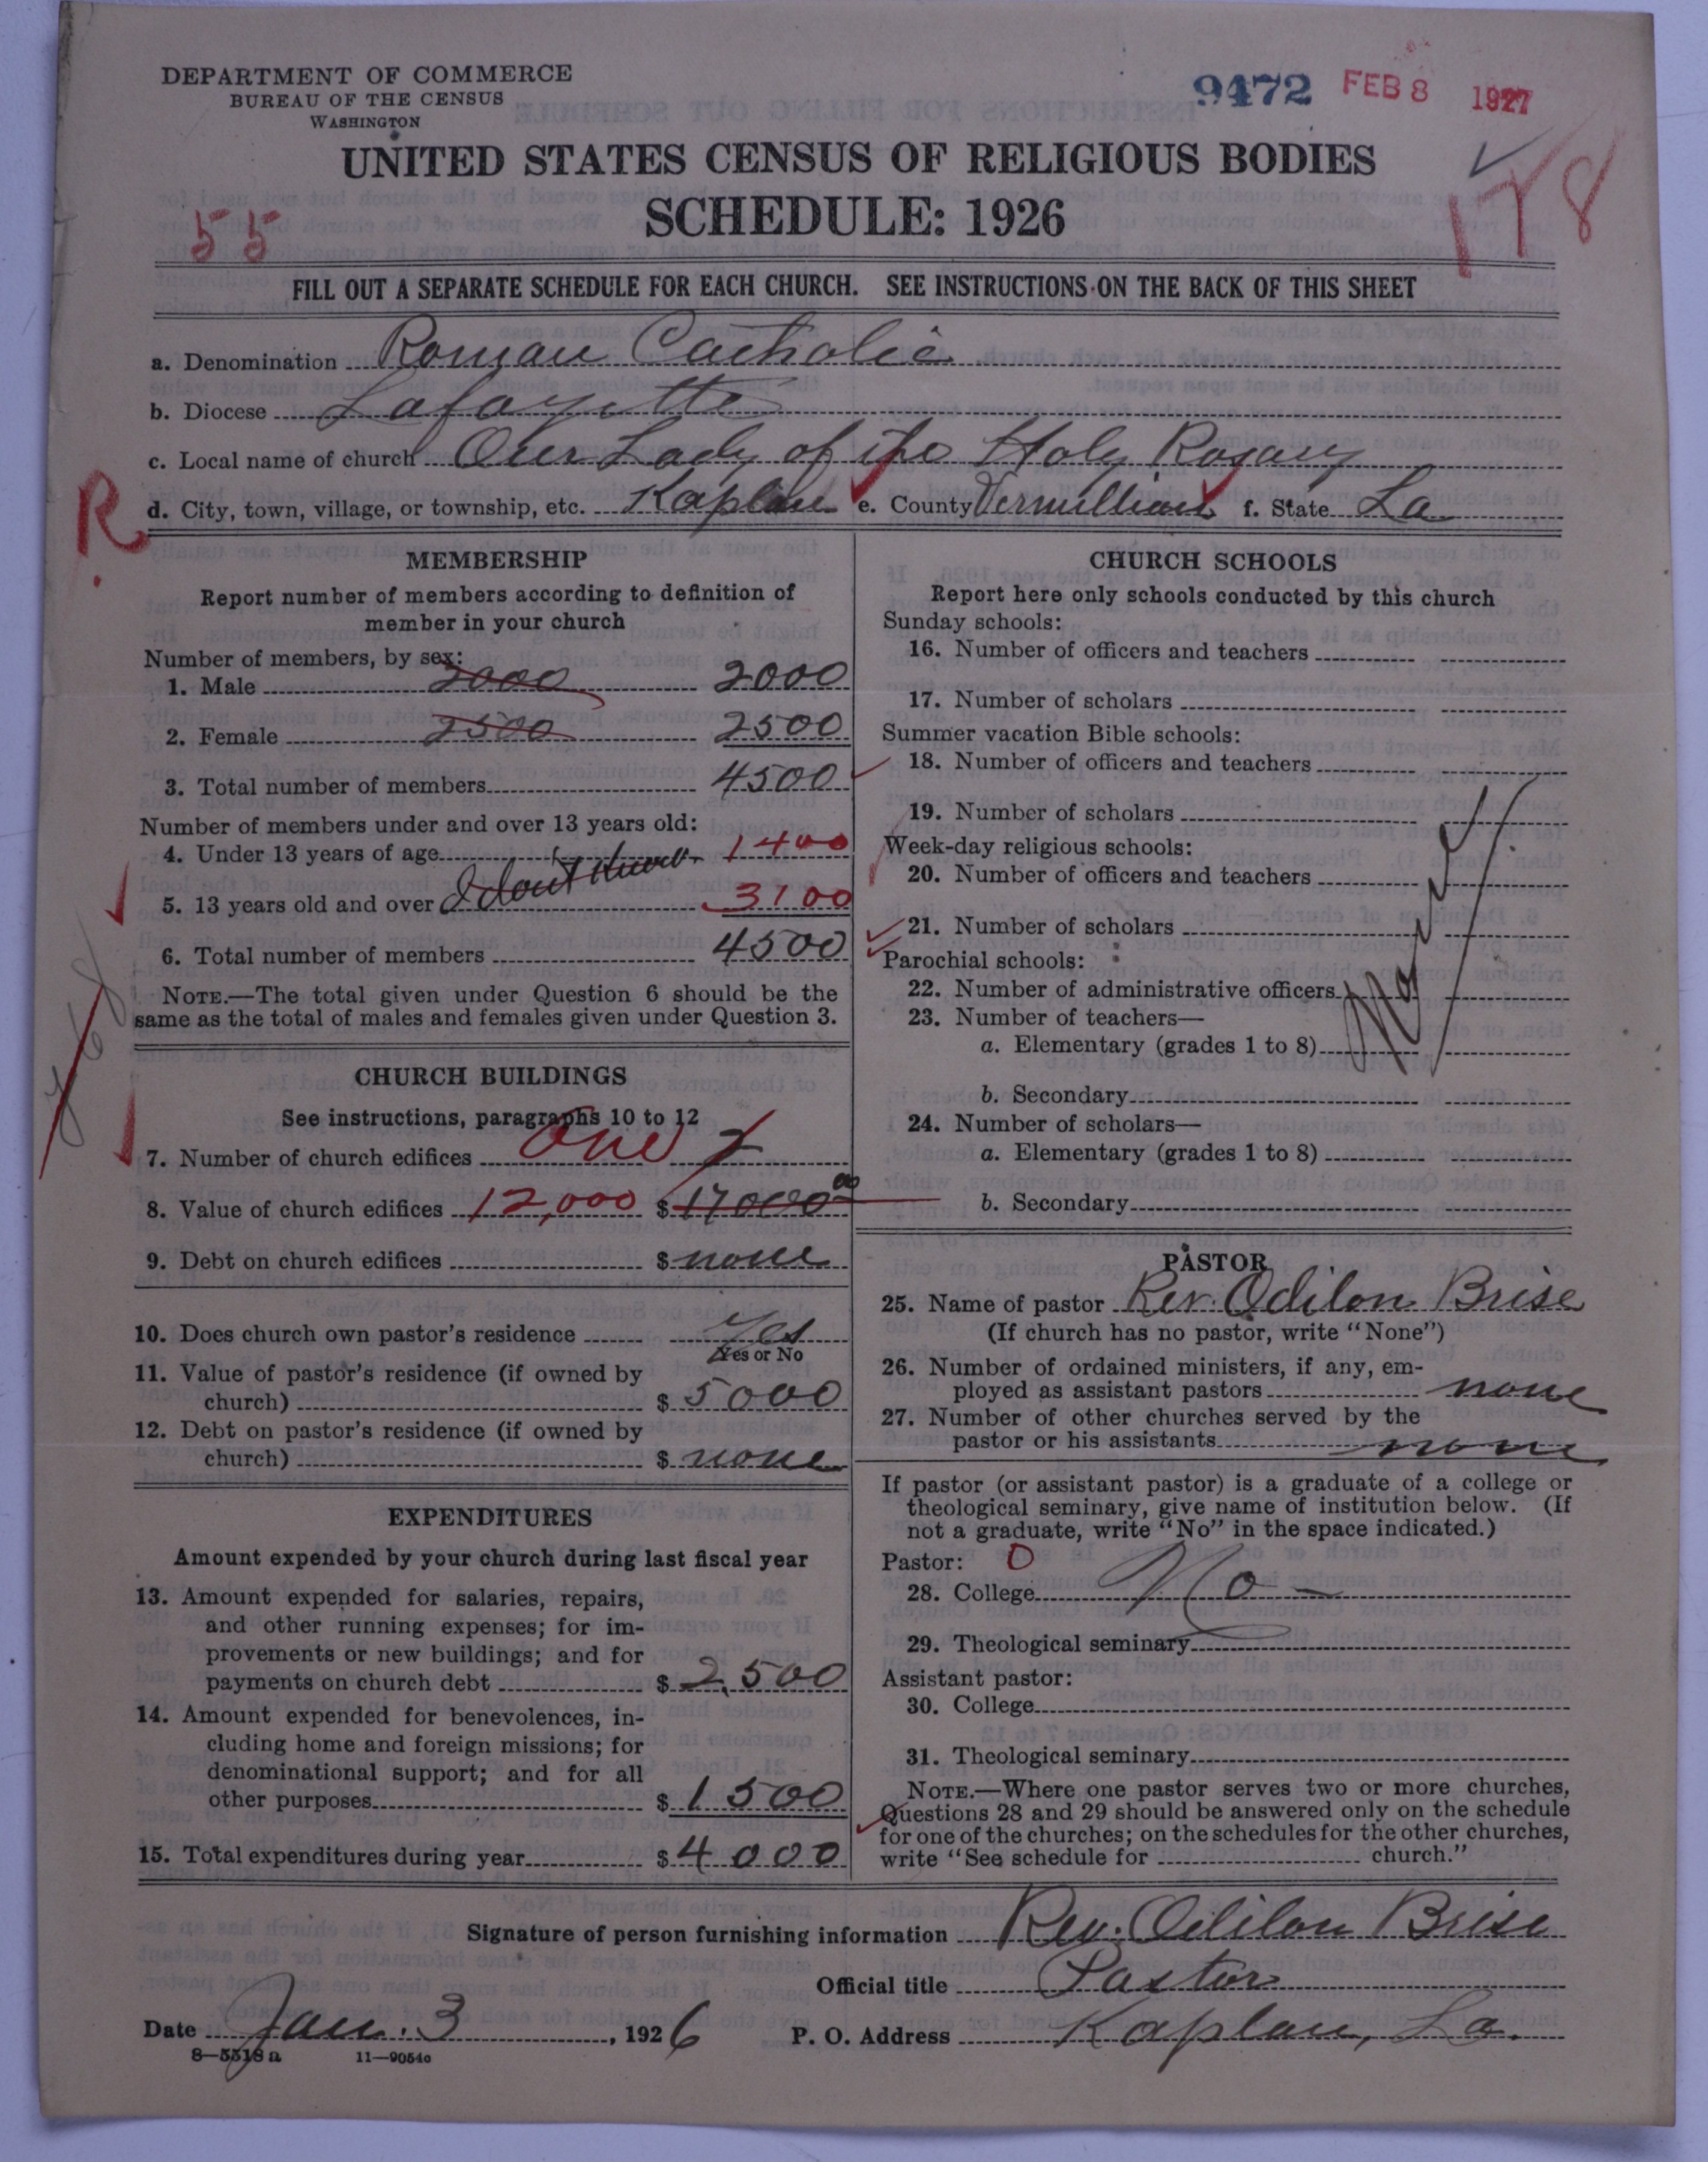 DEPARTMENT OF COMMERCE
BUREAU OF THE CENSUS
WASHINGTON
9472 FEB 8 1927
UNITED STATES CENSUS OF RELIGIOUS BODIES
178
55
SCHEDULE: 1926
FILL OUT A SEPARATE SCHEDULE FOR EACH CHURCH. SEE INSTRUCTIONS ON THE BACK OF THIS SHEET
a. Denomination Roman Catholic
b. Diocese Lafayette
c. Local name of church Our Lady of the Holy Rosary
R
d. City, town, village, or township, etc. Kaplan e. County Vermillion f. State La
MEMBERSHIP
Report number of members according to definition of
member in your church
Number of members, by sex:
1. Male 2000 2000
2. Female 2500 2500
3. Total number of members 4500
Number of members under and over 13 years old:
4. Under 13 years of age 1400
5. 13 years old and over I dont know 3100
6. Total number of members 4500
NOTE.—The total given under Question 6 should be the
same as the total of males and females given under Question 3.
CHURCH BUILDINGS
See instructions, paragraphs 10 to 12
7. Number of church edifices One
8. Value of church edifices 12,000 $ 17000 00
9. Debt on church edifices $ none
10. Does church own pastor's residence Yes
Yes or No
11. Value of pastor's residence (if owned by
church) $ 5000
12. Debt on pastor's residence (if owned by
church) $ none
EXPENDITURES
Amount expended by your church during last fiscal year
13. Amount expended for salaries, repairs,
and other running expenses; for im-
provements or new buildings; and for
payments on church debt $ 2,500
14. Amount expended for benevolences, in-
cluding home and foreign missions; for
denominational support; and for all
other purposes $ 1500
15. Total expenditures during year $ 4000
CHURCH SCHOOLS
Report here only schools conducted by this church
Sunday schools:
16. Number of officers and teachers
17. Number of scholars
Summer vacation Bible schools:
18. Number of officers and teachers
19. Number of scholars
Week-day religious schools:
20. Number of officers and teachers
21. Number of scholars
Parochial schools:
22. Number of administrative officers
23. Number of teachers—
a. Elementary (grades 1 to 8)
b. Secondary
24. Number of scholars—
a. Elementary (grades 1 to 8)
b. Secondary
PASTOR
25. Name of pastor Rev. Odilon Brise
(If church has no pastor, write "None")
26. Number of ordained ministers, if any, em-
ployed as assistant pastors none
27. Number of other churches served by the
pastor or his assistants none
If pastor (or assistant pastor) is a graduate of a college or
theological seminary, give name of institution below. (If
not a graduate, write "No" in the space indicated.)
Pastor: 0
28. College No —
29. Theological seminary
Assistant pastor:
30. College
31. Theological seminary
NOTE.—Where one pastor serves two or more churches,
Questions 28 and 29 should be answered only on the schedule
for one of the churches; on the schedules for the other churches,
write "See schedule for church."
Signature of person furnishing information Rev. Odilon Brise
Official title Pastor
Date Jan. 3, 1926 P. O. Address Kaplan, La.
8—5518 a 11—9054c